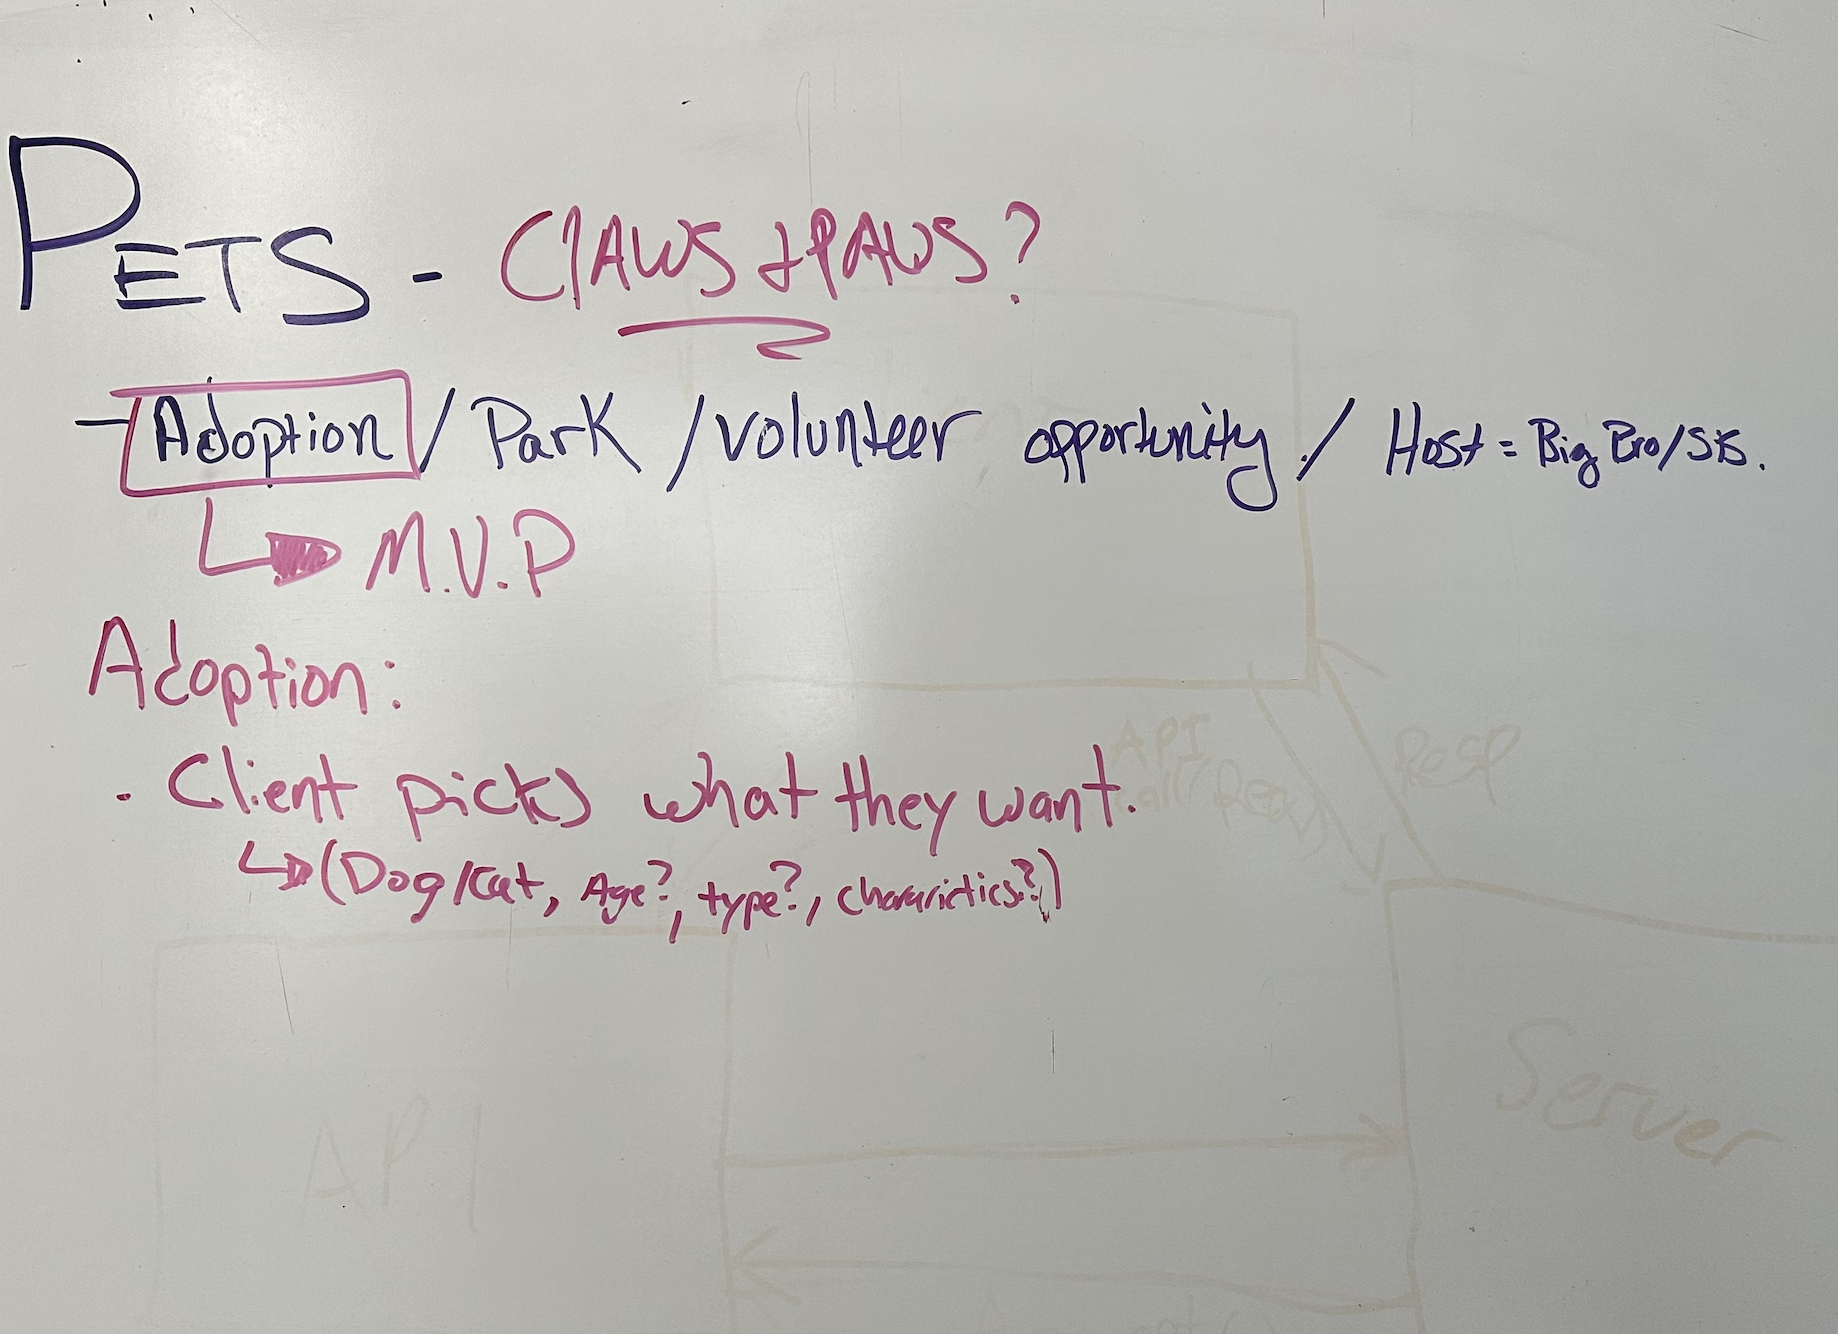 PETS - ClAWS + PAWS?
- Adoption / Park / volunteer opportunity. / Host = Big Bro/Sis.
M.V.P
Adoption:
. Client picks what they want.
(Dog/Cat, Age?, type?, chararictics?,)
API Resp
API
Server